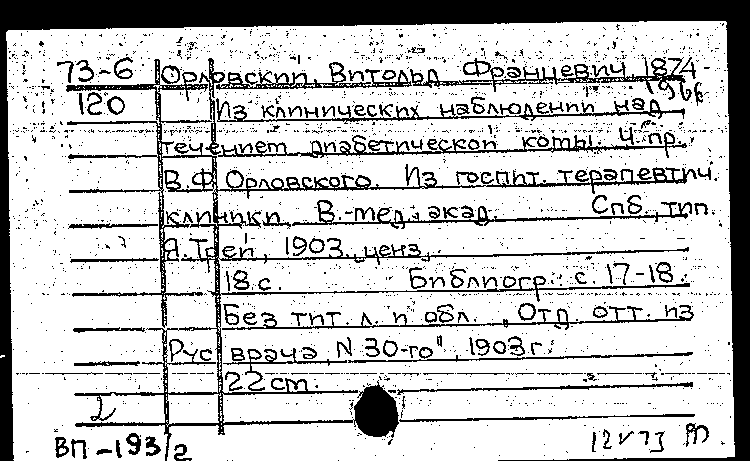 73-6 Орловский, Витольд Францевич 1874-
1966
120 Из клинических наблюдений над
течением диабетической комы. Ч. пр.
В.Ф. Орловского. Из госпит. терапевтич.
клиники В.-мед. акад. Спб., тип.
Я. Трей, 1903. ценз.
18 с. Библиогр.: с. 17-18.
Без тит. л. и обл. „Отд. отт. из
Рус врача, N 30-го", 1903 г.
22 ст.
2
ВП-193/2 12 V 73